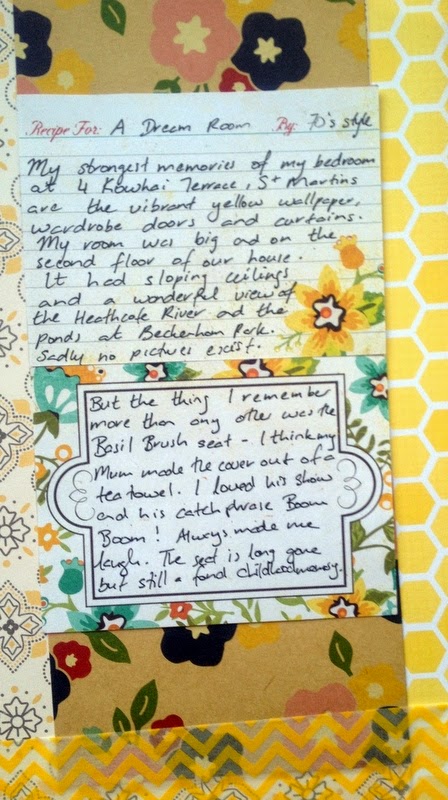 Recipe For: A Dream Room By: 70's style
My strongest memories of my bedroom
at 4 Kowhai Terrace, St Martins
are the vibrant yellow wallpaper,
wardrobe doors and curtains.
My room was big and on the
second floor of our house.
It had sloping ceilings
and a wonderful view of
the Heathcote River and the
Ponds at Beckenham Park.
Sadly no pictures exist.
But the thing I remember
more than any other was the
Basil Brush seat - I think my
Mum made the cover out of a
teatowel. I loved his show
and his catch phrase Boom
Boom! Always made me
laugh. The seat is long gone
but still a fond childhood memory.